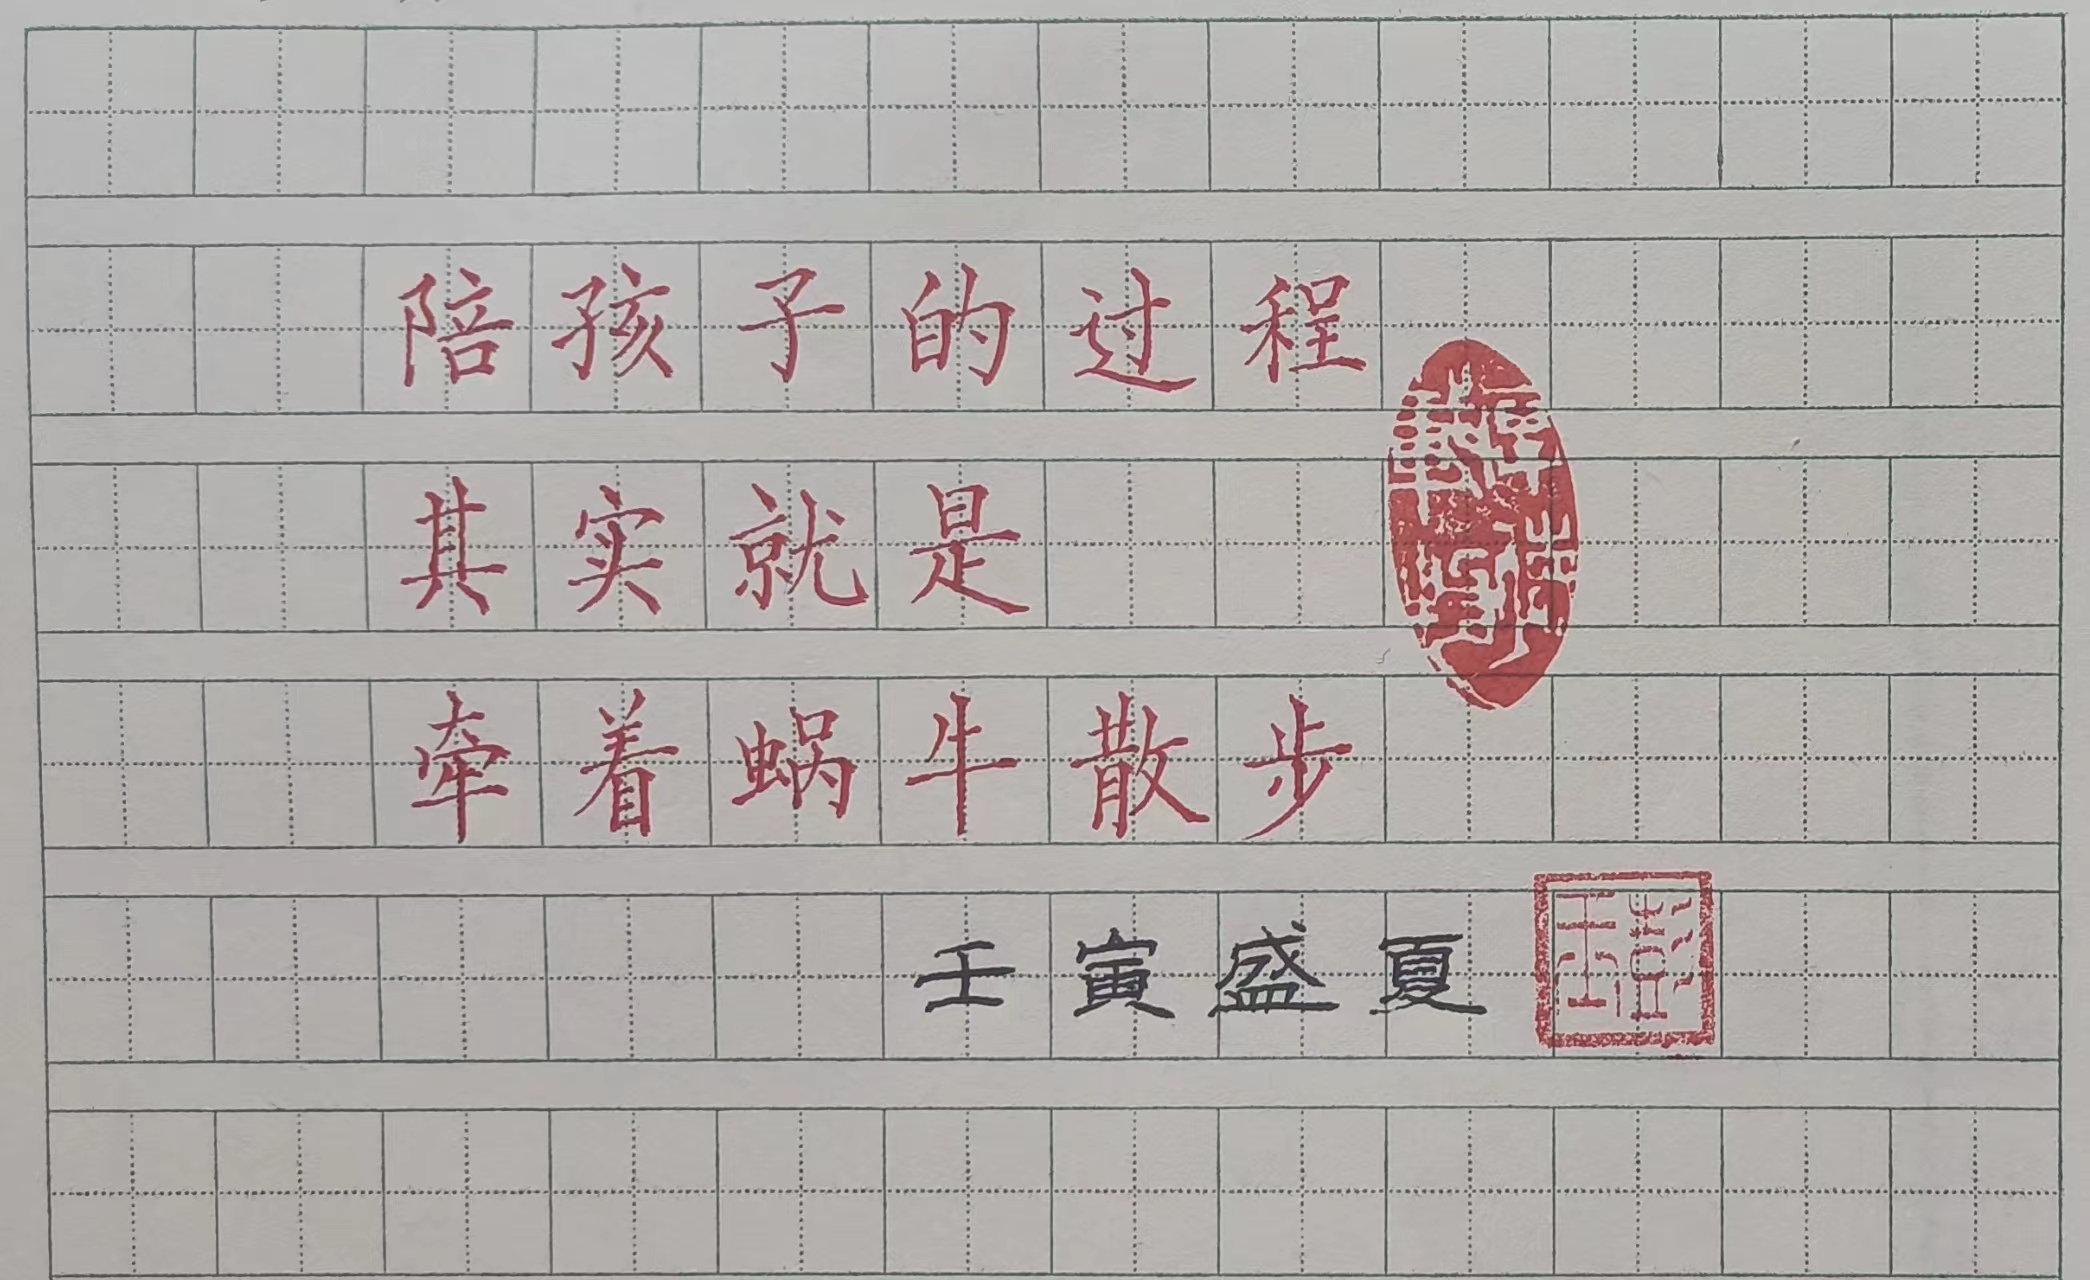 陪孩子的过程
其实就是
牵着蜗牛散步
壬寅盛夏